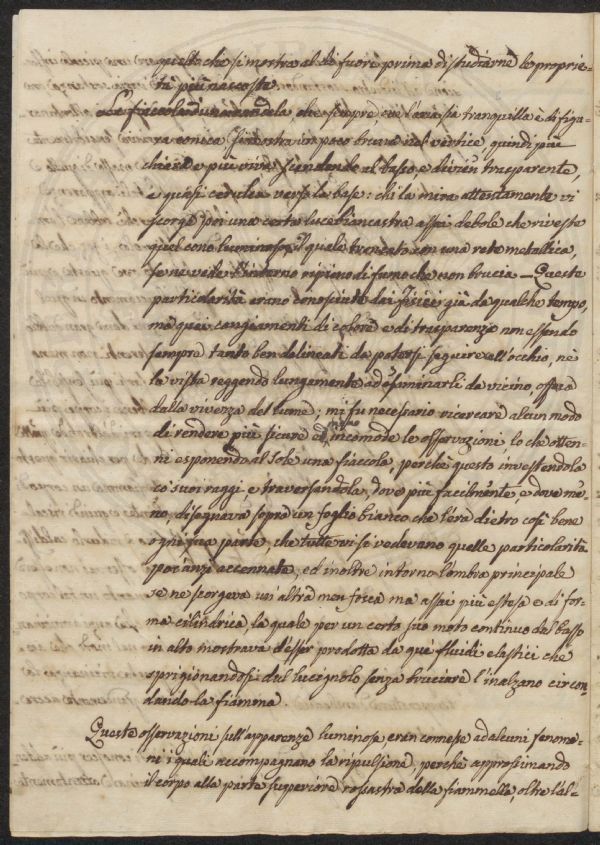 quello che si mostra al di fuori prima di studiarne le proprie-
tà più nascoste.
La fiaccola d'una candela che sempre che l'aria sia tranquilla è di figu-
ra conica si mostra un poco bruna nel vertice, quindi più
chiara e più viva scendendo al basso, e divien trasparente,
e quasi cerulea verso la base: chi la mira attentamente vi
scorge poi una certa luce biancastra assai debole che riveste
quel cono luminoso, il quale troncato con una rete metallica,
se ne vede l'interno ripieno di fumo che non brucia — Queste
particolarità erano conosciute dai fisici già da qualche tempo,
ma quei cangiamenti di colore e di trasparenza non essendo
sempre tanto ben delineati da potersi seguire coll'occhio, nè
la vista reggendo lungamente ad esaminarli da vicino, offesa
dalla vivezza del lume; mi fu necessario ricercare alcun modo
di rendere più sicure ed meno incomode le osservazioni lo che otten-
ni esponendo al Sole una fiaccola, perchè questo investendola
co' suoi raggi e traversandola, dove più facilmente e dove me-
no, disegnava sopra un foglio bianco che l'era dietro così bene
ogni sua parte, che tutte vi si vedevano quelle particolarità
poc'anzi accennate, ed inoltre intorno l'ombra principale
se ne scorgeva un'altra men fosca ma assai più estesa e di for-
ma cilindrica, la quale per un certo suo moto continuo dal basso
in alto mostrava d'esser prodotta da que' fluidi elastici che
sprigionandosi dal lucignolo senza bruciare s'inalzano circon-
dando la fiamma.
Queste osservazioni sull'apparenze luminose eran connesse ad alcuni fenome-
ni i quali accompagnano la ripulsione, perchè approssimando
il corpo alla parte superiore rossastra della fiammella, oltre l'al-